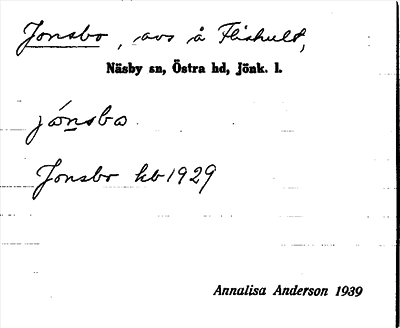 Jonsbo, avs å Flishult,
Näsby sn, Östra hd, Jönk. l.
jónsbo
Jonsbo kb 1929
Annalisa Anderson 1939